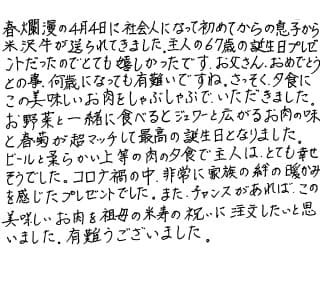 春爛漫の4月4日に社会人になって初めてからの息子から
米沢牛が送られてきました。主人の67歳の誕生日プレゼ
ントだったのでとても嬉しかったです。お父さん、おめでとう
との事、何歳になっても有難いですね。さっそく、夕食に
この美味しいお肉をしゃぶしゃぶで、いただきました。
お野菜と一緒に食べるとジュワーと広がるお肉の味
と春菊が超マッチして最高の誕生日となりました。
ビールと柔らかい上等の肉の夕食で主人は、とても幸せ
そうでした。コロナ禍の中、非常に家族の絆の暖かみ
を感じたプレゼントでした。また、チャンスがあれば、この
美味しいお肉を祖母の米寿の祝いに注文したいと思
いました。有難うございました。